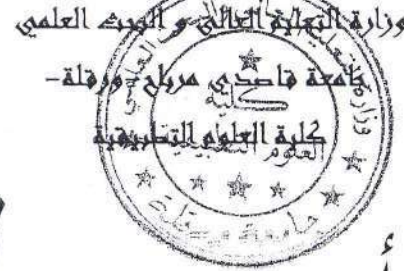 وزارة التعليم العالي و البحث العلمي
جامعة قاصدي مرباح ورقلة-
كلية العلوم التطبيقية
كلية
العلوم التطبيقية
جامعة ورقلة
أ